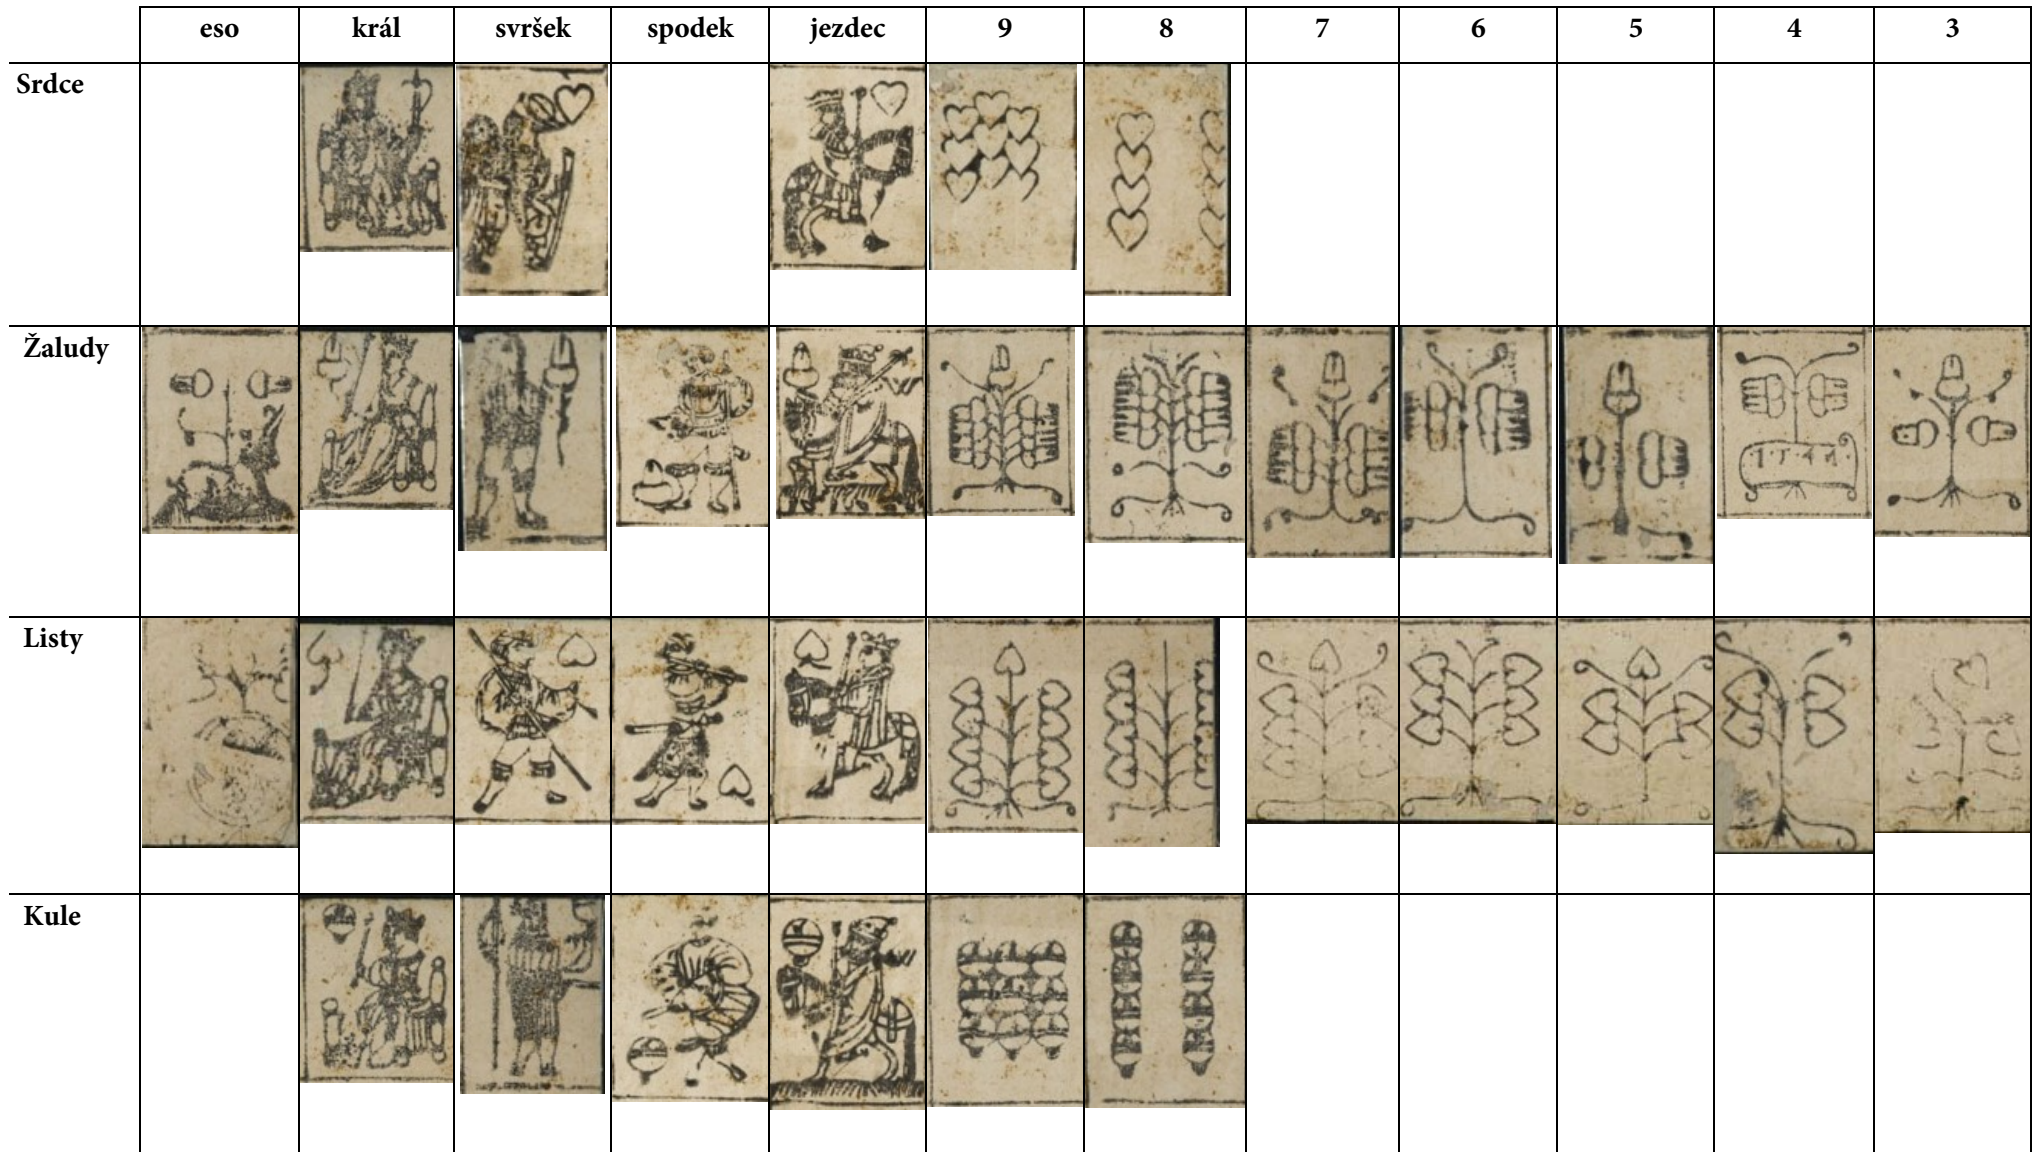 eso král svršek spodek jezdec 9 8 7 6 5 4 3
Srdce
Žaludy
Listy
Kule